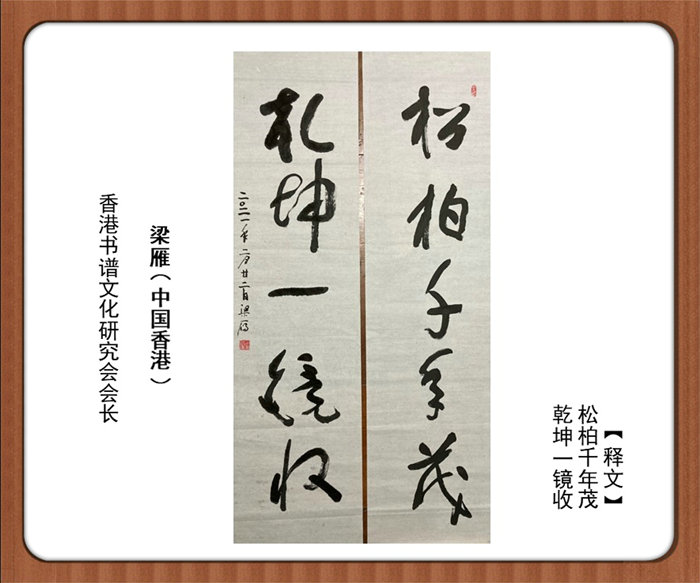 松柏千年茂
乾坤一镜收
二〇二一年二月廿二日梁雁
【释文】
松柏千年茂
乾坤一镜收
梁雁(中国香港)
香港书谱文化研究会会长